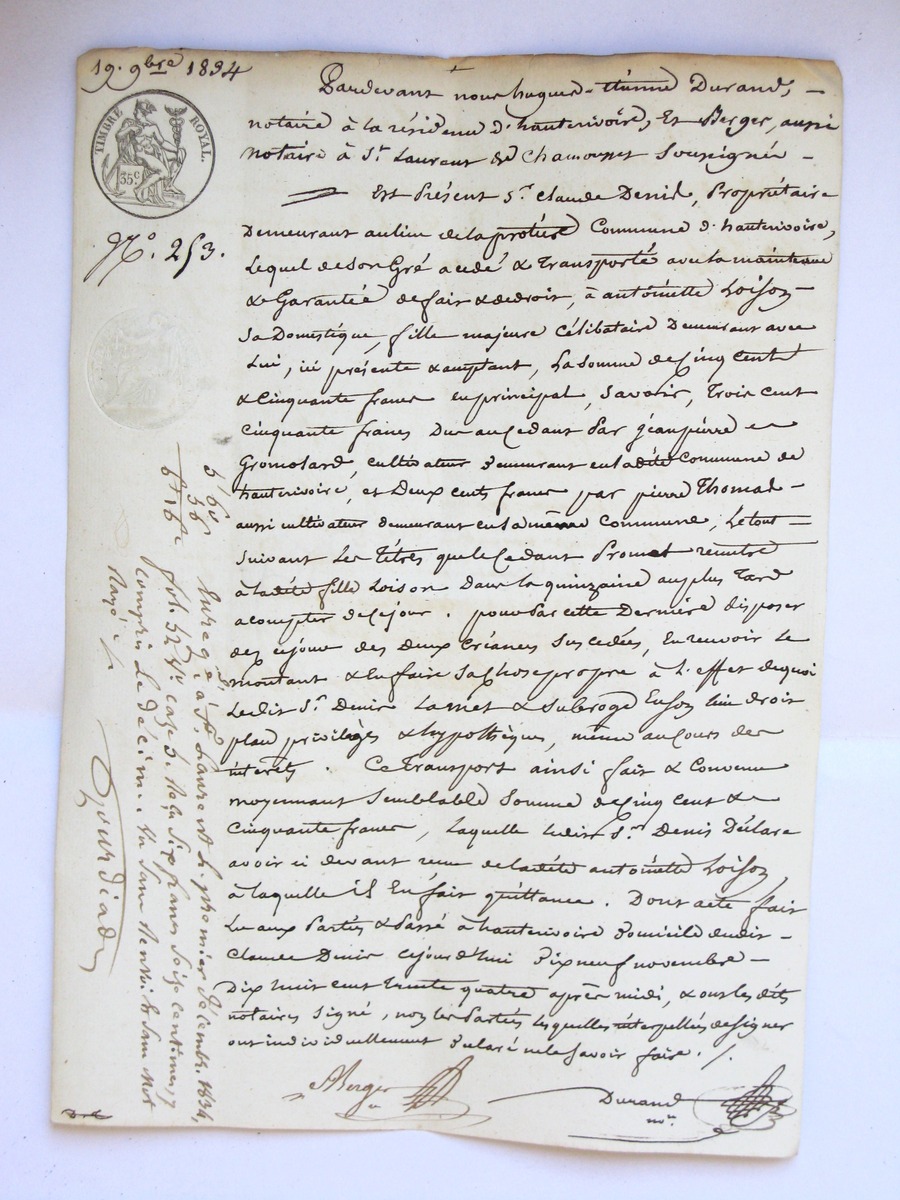 19. 9bre 1834
TIMBRE ROYAL.
35c
No. 253.
Pardevant nous hugues-étienne Durand, -
notaire à la résidence d'hauterivoire, Et Berger, aussi
notaire à St. Laurent de Chamousset Soussignés -
Est Présent Sr. Claude Denis, Propriétaire
Demeurant au lieu de la protière Commune d'hauterivoire,
Lequel de son Gré a cédé & Transporté avec la maintenue
& Garantie de fait & de droit, à antoinette Loison -
Sa Domestique, fille majeure Célibataire Demeurant avec
Lui, ici présente & acceptant, La Somme de Cinq Cent
& Cinquante francs en principal, Savoir, Trois Cent
Cinquante francs Dus au Cedant Par jéan pierre
Gromolard, cultivateur Demeurant en ladite Commune de
hauterivoire, et Deux cents francs par pierre Thomas -
aussi cultivateur demeurant en la même Commune, Le tout -
Suivant Les Titres que le Cedant Promet remettre
à ladite fille Loison Dans la quinzaine au plus Tard
a compter de Ce jour. pour Par cette Dernière disposer
dez ce jour des deux Créances Sus cedées, En recevoir Le
montant & En faire Sa Chose propre à L'effet de quoi
Ledit Sr. Denis La met & Subroge En Son lieu droit
place privilèges & hypothèques, même au Cours des
intérêts. Ce Transport ainsi fait & Convenu
moyennant Semblable Somme de Cinq Cent &
Cinquante francs, Laquelle ledit Sr. Denis Déclare
avoir ci devant reçue de ladite antoinette Loison
à laquelle il En fait quittance. Dont acte fait
Lu aux Parties & Passé à hauterivoire Domicile dudit -
Claude Denis cejourd'hui Dix neuf novembre -
Dix huit cent trente quatre après midi, & ont les dits
notaires Signé, non les Parties lesquelles interpellées de Signer
ont individuellement Déclaré ne le Savoir faire. /.
ABerger
Durand
nore
Enregé. à St. Laurent le premier Décembre 1834,
fol. 52 Vo. case 5. Reçu Six francs Seize centimes
compris le décime.
Rayé
Gourdiad